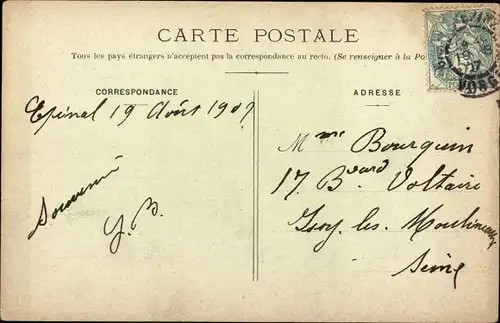 CARTE POSTALE
Tous les pays étrangers n'acceptent pas la correspondance au recto. (Se renseigner à la Po
CORRESPONDANCE
ADRESSE
Epinal 19 Août 1907
Souvenir
Y. B.
Mme Bourguin
17. Bvard Voltaire
Issy. les. Moulineaux
Seine